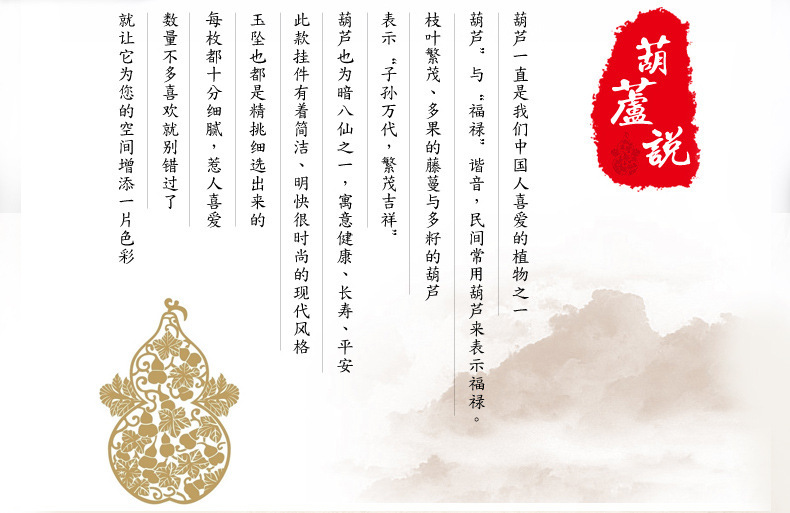 葫蘆說
葫芦一直是我们中国人喜爱的植物之一
葫芦”与“福禄”谐音，民间常用葫芦来表示福禄。
枝叶繁茂、多果的藤蔓与多籽的葫芦
表示“子孙万代，繁茂吉祥”
葫芦也为暗八仙之一，寓意健康、长寿、平安
此款挂件有着简洁、明快很时尚的现代风格
玉坠也都是精挑细选出来的
每枚都十分细腻，惹人喜爱
数量不多喜欢就别错过了
就让它为您的空间增添一片色彩